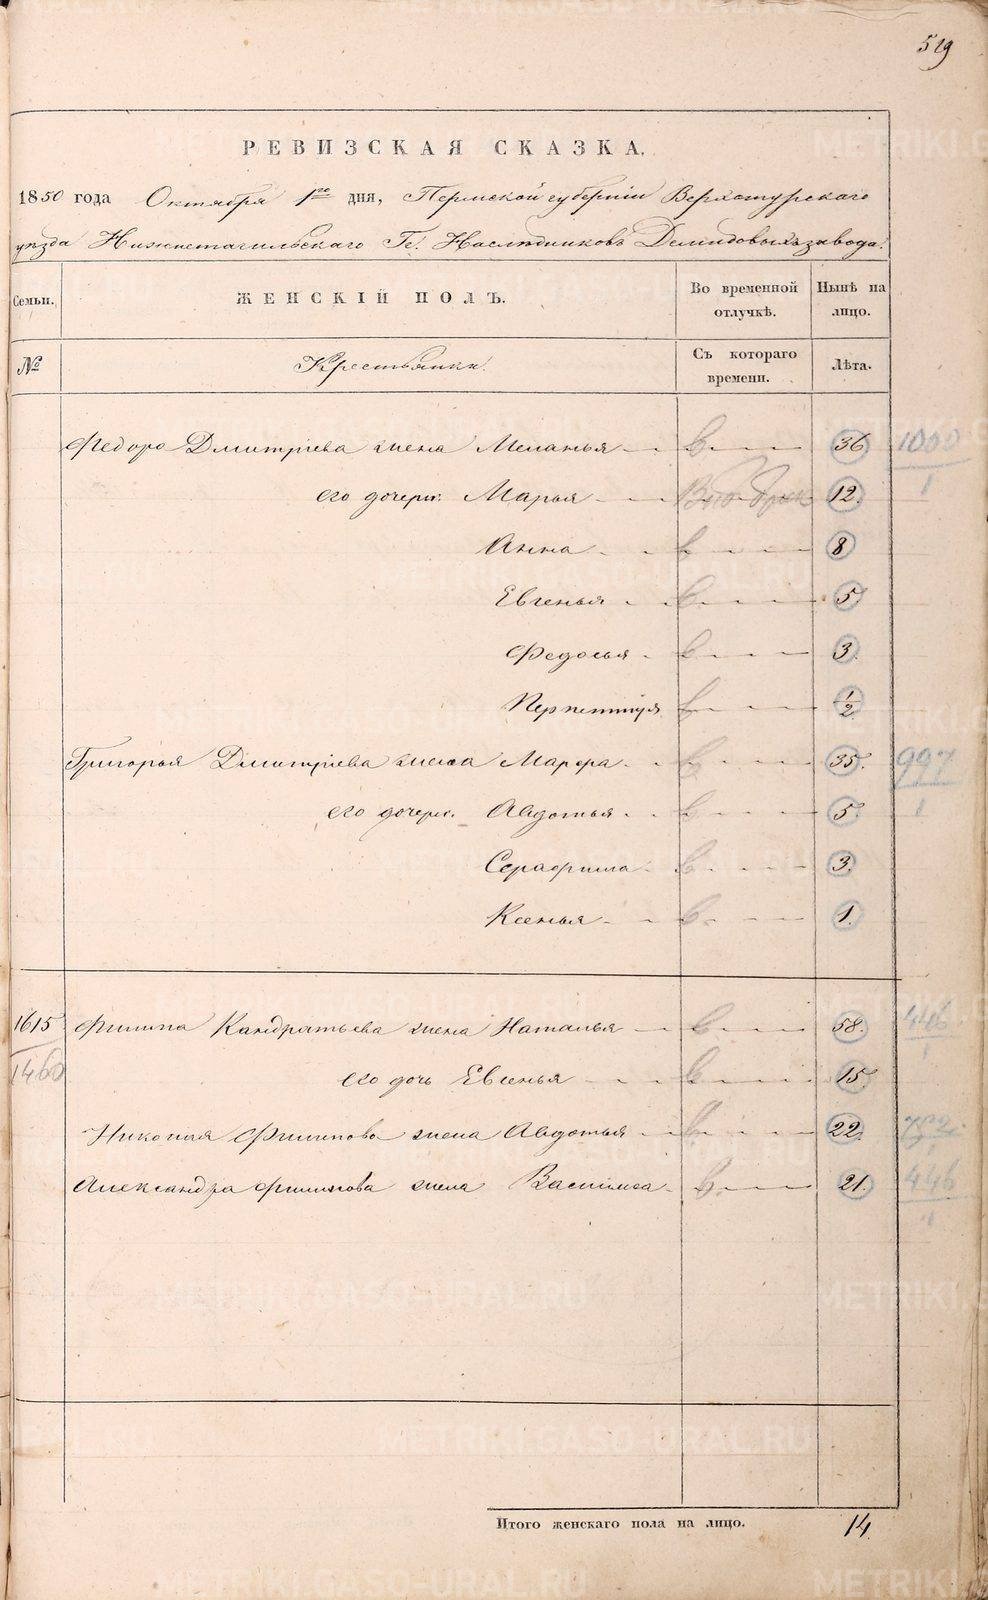 519
РЕВИЗСКАЯ СКАЗКА.
1850 года Октября 1го дня, Пермской губерніи Верхотурскаго
уѣзда Нижнетагильскаго Гг. Наслѣдниковъ Демидовыхъ завода.
Семьи. ЖЕНСКІЙ ПОЛЪ. Во временной отлучкѣ. Нынѣ на лицо.
№ Крестьянки. Съ котораго времени. Лѣта.
Федора Дмитріева жена Меланья в 36 1000 1
его дочери: Марья 12.
Анна в 8
Евгенья в 5
Федосья в 3.
Перпетуія в 1/2
Григорья Дмитріева жена Марфа в 35. 997 1
его дочери. Авдотья в 5.
Серафима в 3.
Ксенья в 1.
1615 Филипа Кандратьева жена Наталья в 58. 446 1
1460 его дочь Евсенья в 15.
Николая Филипова жена Авдотья в 22.
Александра Филипова жена Василиса в 21. 446 1
Итого женскаго пола на лицо. 14.
METRIKI.GASO-URAL.RU